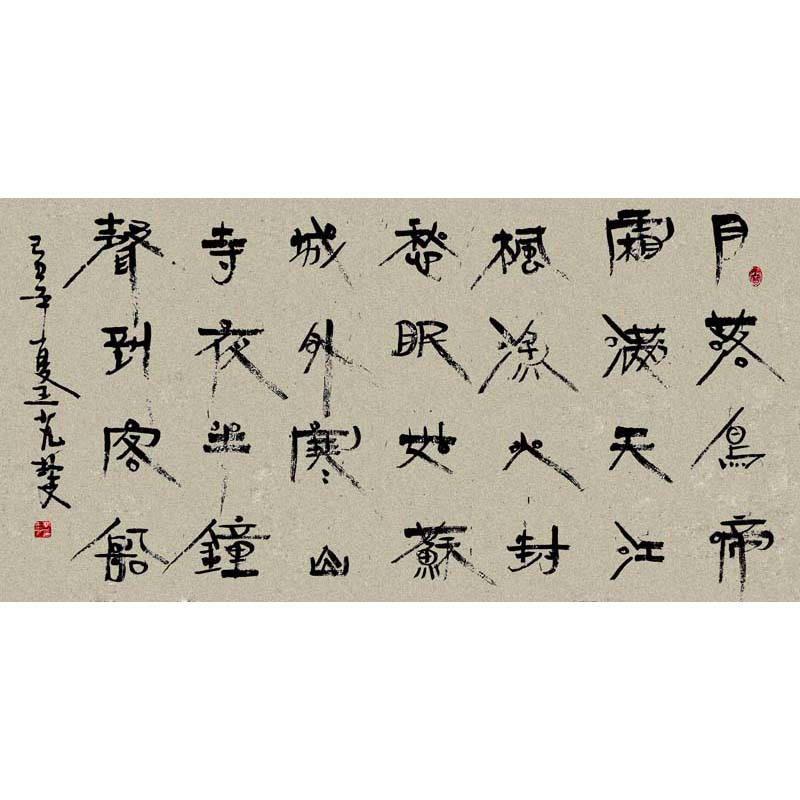 月落烏啼
霜滿天江
楓漁火封
愁眠姑蘇
城外寒山
寺夜半鐘
聲到客船
己丑年夏王光